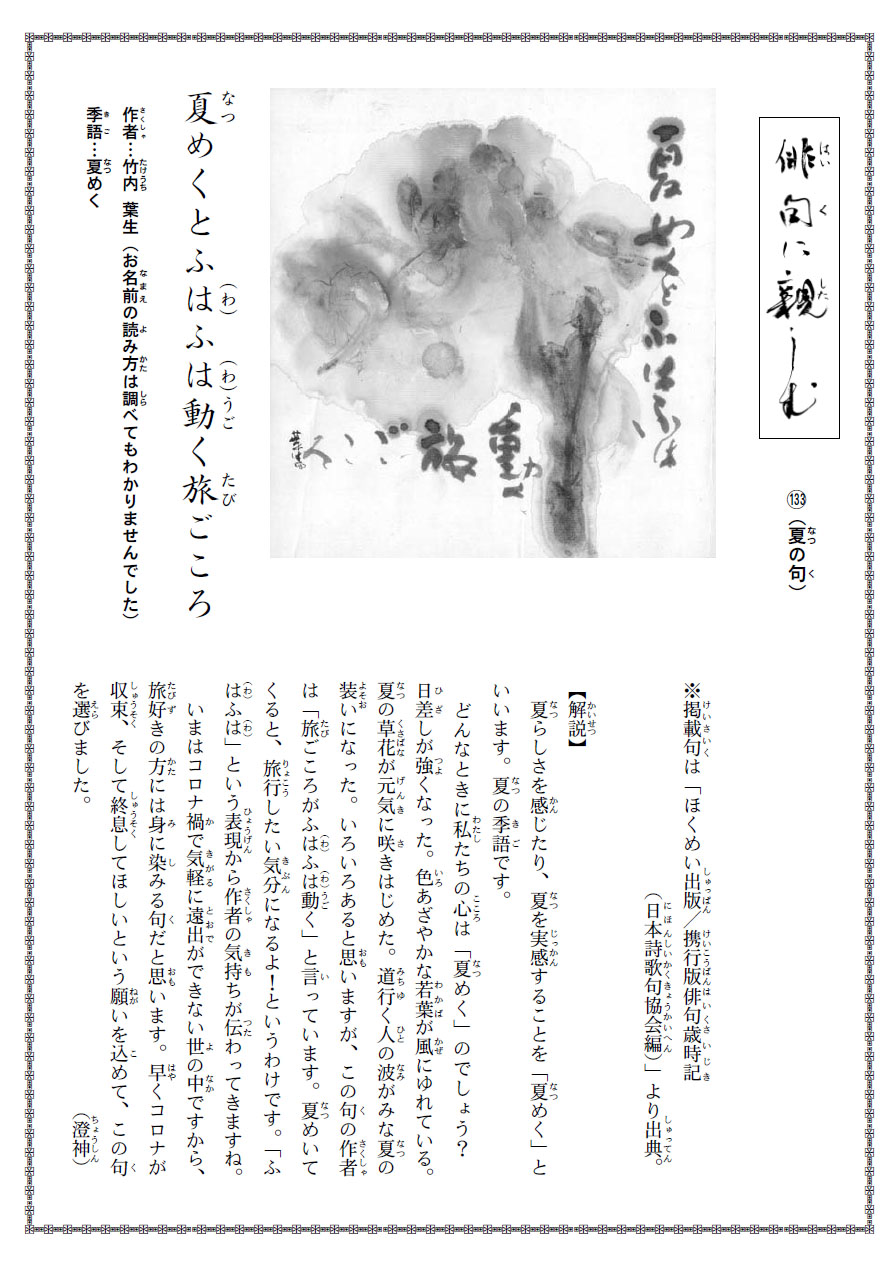 俳句に親しむ
133（夏の句）
夏めくとふはふは動く旅ごころ
葉清
夏めくとふはふは動く旅ごころ
作者…竹内　葉生（お名前の読み方は調べてもわかりませんでした）
季語…夏めく
※掲載句は「ほくめい出版／携行版俳句歳時記
（日本詩歌句協会編）」より出典。
【解説】
夏らしさを感じたり、夏を実感することを「夏めく」と
いいます。夏の季語です。
どんなときに私たちの心は「夏めく」のでしょう？
日差しが強くなった。色あざやかな若葉が風にゆれている。
夏の草花が元気に咲きはじめた。道行く人の波がみな夏の
装いになった。いろいろあると思いますが、この句の作者
は「旅ごころがふはふは動く」と言っています。夏めいて
くると、旅行したい気分になるよ！というわけです。「ふ
はふは」という表現から作者の気持ちが伝わってきますね。
いまはコロナ禍で気軽に遠出ができない世の中ですから、
旅好きの方には身に染みる句だと思います。早くコロナが
収束、そして終息してほしいという願いを込めて、この句
を選びました。
（澄神）